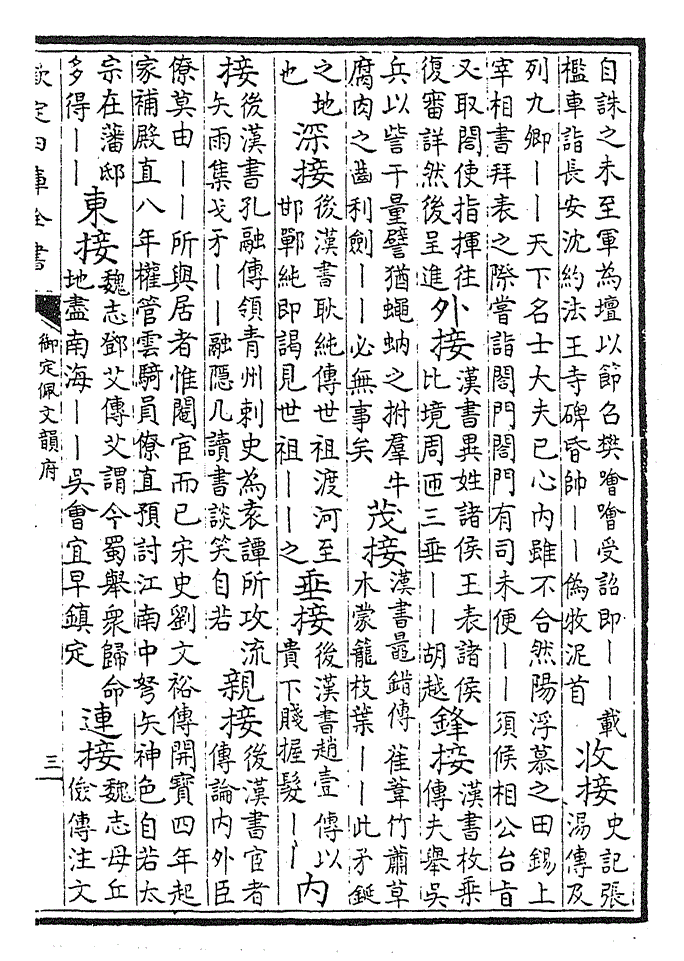 自誅之未至軍為壇以節召樊噲噲受詔即——載
檻車詣長安沈約法王寺碑昏帥——偽牧泥首
收接
史記張
湯傳及
列九卿——天下名士大夫已心內雖不合然陽浮慕之田錫上
宰相書拜表之際嘗詣閤門閤門有司未便——須候相公台旨
又取閤使指揮往
復審詳然後呈進
外接
漢書異姓諸侯王表諸侯
比境周匝三垂——胡越
鋒接
漢書枚乘
傳夫舉吳
兵以訾于量譬猶蠅蚋之拊羣牛
腐肉之齒利劍——必無事矣
茂接
漢書鼂錯傳萑葦竹蕭草
木蒙籠枝葉——此矛鋋
之地
也
深接
後漢書耿純傳世祖渡河至
邯鄲純即謁見世祖——之
垂接
後漢書趙壹傳以
貴下賤握髮——
內
接
後漢書孔融傳領青州刺史為袁譚所攻流
矢雨集戈矛——融隱几讀書談笑自若
親接
後漢書宦者
傳論內外臣
僚莫由——所與居者惟閹宦而已宋史劉文裕傳開寶四年起
家補殿直八年權管雲騎員僚直預討江南中弩矢神色自若太
宗在藩邸
多得——
東接
魏志鄧艾傳艾謂今蜀舉衆歸命
地盡南海——吳會宜早鎮定
連接
魏志毋丘
儉傳注文
欽定四庫全書
御定佩文韻府
三